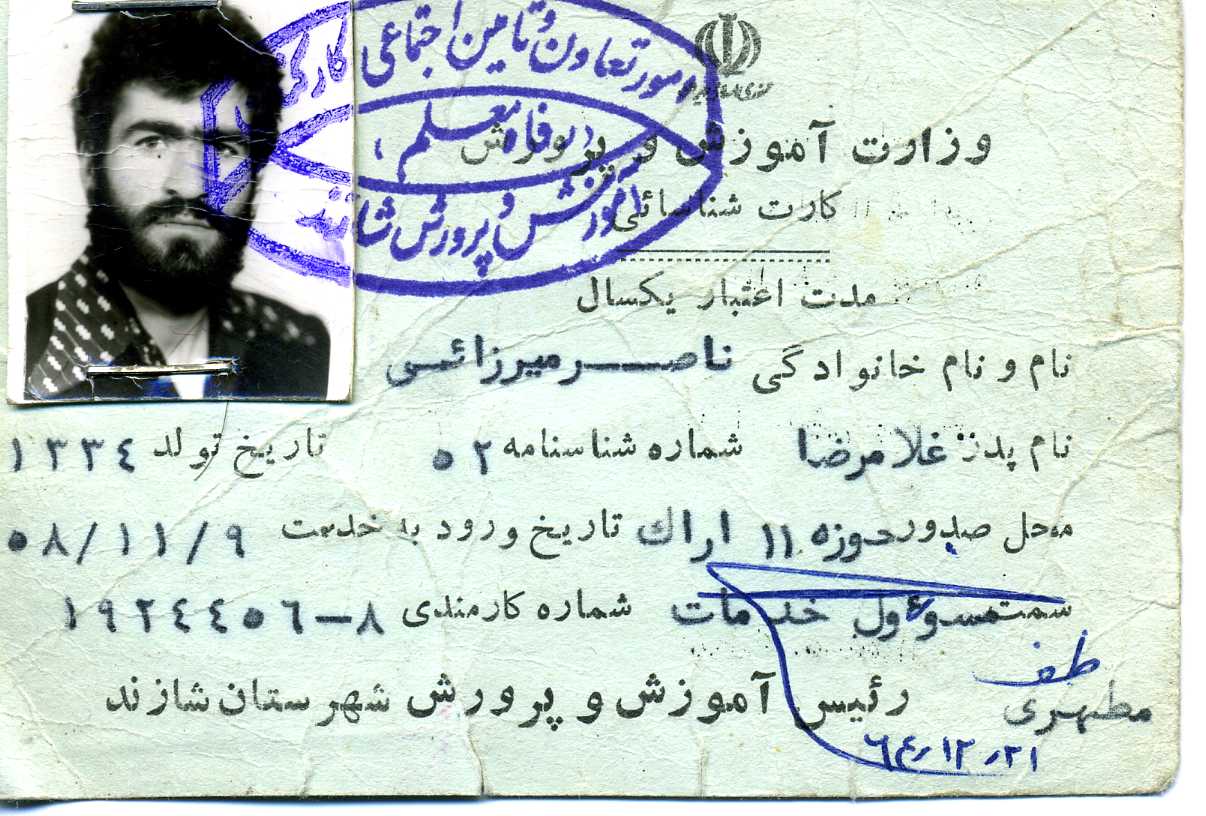 وزارت آموزش و پرورش
کارت شناسائی
مدت اعتبار یکسال
نام و نام خانوادگی ناصر میرزائی
نام پدر غلامرضا شماره شناسنامه ۵۲ تاریخ تولد ۱۳۳۴
محل صدور حوزه ۱۱ اراك تاریخ ورود به خدمت ۵۸/۱۱/۹
سمت مسوءول خدمات شماره کارمندی ۸-۱۹۲٤٤٥٦
رئیس آموزش و پرورش شهرستان شازند
مطهری
٦٤/۱۲/۲۱
امور تعاون و تامین اجتماعی
رفاه معلم
آموزش و پرورش شازند